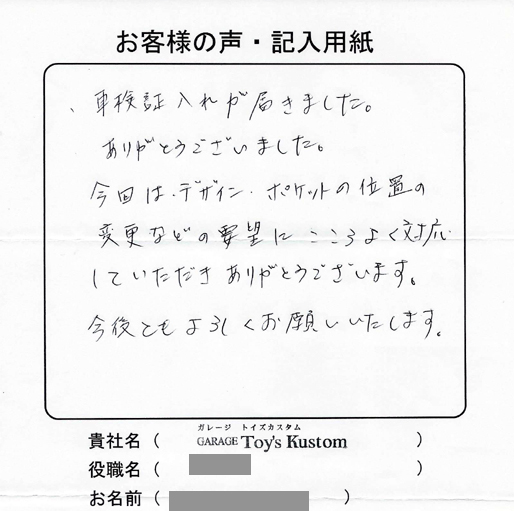 お客様の声・記入用紙
、車検証入れが届きました。
ありがとうございました。
今回は、デザイン・ポケットの位置の
変更などの要望にこころよく対応
していただきありがとうございます。
今後ともよろしくお願いいたします。
ガレージ トイズカスタム
貴社名（ GARAGE Toy's Kustom ）
役職名（ ）
お名前（ ）